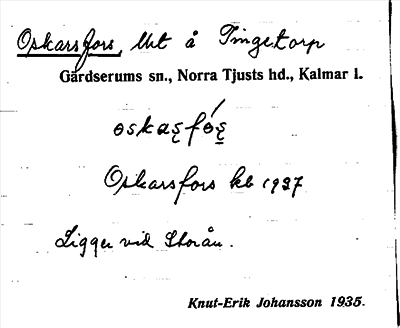 Oskarsfors, lht å Tingetorp
Gärdserums sn., Norra Tjusts hd., Kalmar l.
oskaşfóş
Oskarsfors kb 1937
Ligger vid Storån.
Knut-Erik Johansson 1935.